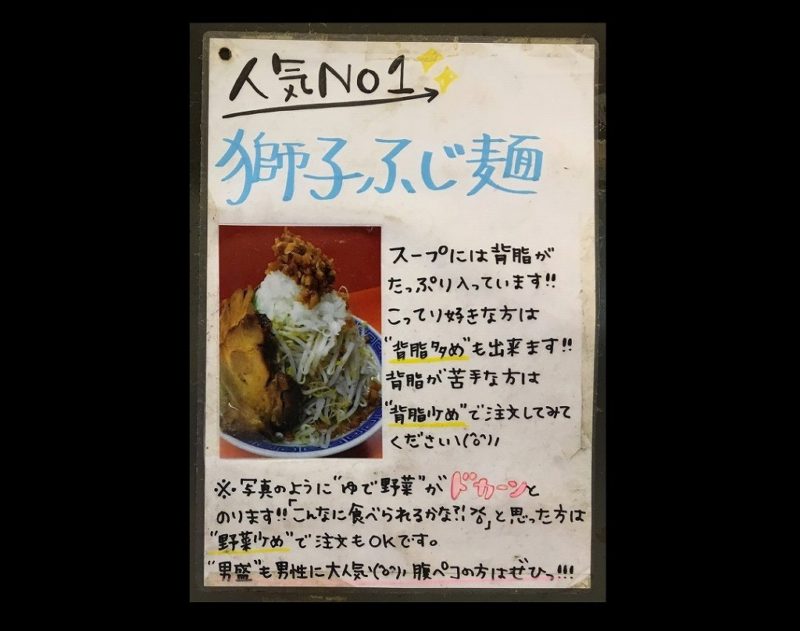 人気No1
獅子ふじ麺
スープには背脂が
たっぷり入っています!!
こってり好きな方は
"背脂多め"も出来ます!!
背脂が苦手な方は
"背脂少め"で注文してみて
ください\(^o^)/
※写真のように"ゆで野菜"がドカーンと
のります!!「こんなに食べられるかな?!」と思った方は
"野菜少め"で注文もOKです。
"男盛"も男性に大人気\(^o^)/腹ペコの方はぜひっ!!!